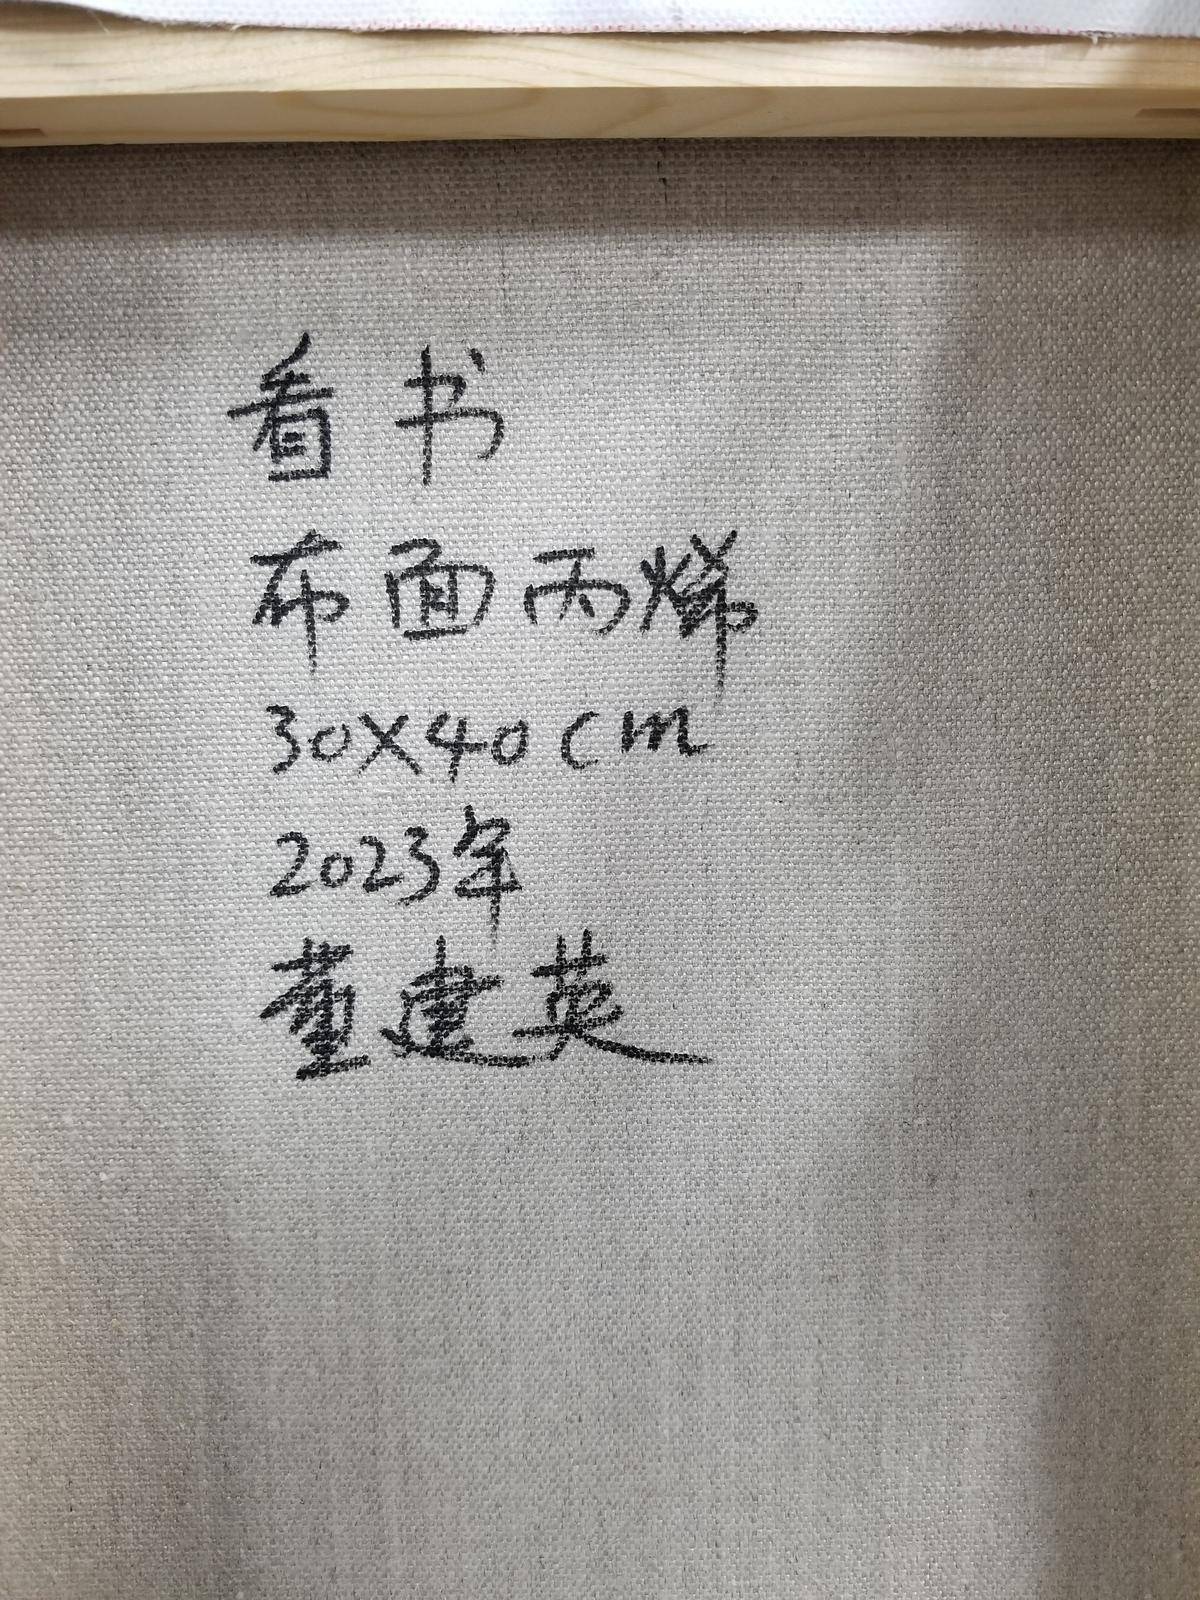 看书
布面丙烯
30X40cm
2023年
董建英